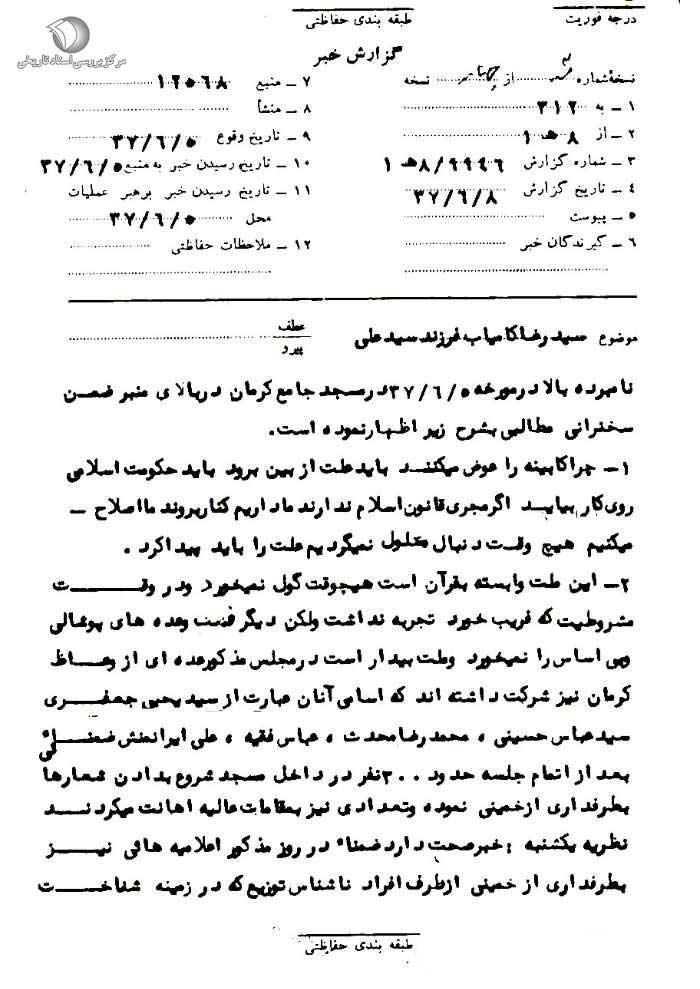 مرکز بررسی اسناد تاریخی
درجه فوریت
طبقه بندی حفاظتی
گزارش خبر
نسخهٔ شماره سه از چهار نسخه
۱ ـ به ۳۱۲
۲ ـ از ۸ هـ ۱
۳ ـ شماره گزارش ۹۹۹۶/۸هـ ۱
۴ ـ تاریخ گزارش ۳۷/۶/۸
۵ ـ پیوست
۶ ـ گیرندگان خبر
۷ ـ منبع ۱۲۵۶۸
۸ ـ منشأ
۹ ـ تاریخ وقوع ۳۷/۶/۵
۱۰ ـ تاریخ رسیدن خبر به منبع ۳۷/۶/۵
۱۱ ـ تاریخ رسیدن خبر برهبر عملیات
محل ۳۷/۶/۵
۱۲ ـ ملاحظات حفاظتی
موضوع سید رضا کامیاب فرزند سید علی
عطف
پیرو
نامبرده بالا در مورخه ۳۷/۶/۵ در مسجد جامع کرمان در بالای منبر ضمن
سخنرانی مطالبی بشرح زیر اظهار نموده است.
۱- چرا کابینه را عوض میکنند باید علت از بین برود باید حکومت اسلامی
روی کار بیاید اگر مجری قانون اسلام ندارند ما داریم کنار بروند ما اصلاح ـ
میکنیم هیچ وقت دنبال معلول نمیگردیم علت را باید پیدا کرد .
۲- این ملت وابسته بقرآن است هیچوقت گول نمیخورد و در وقت
مشروطیت که فریب خورد تجربه نداشت ولکن دیگر فریب وعده های پوشالی
وبی اساس را نمیخورد وملت بیدار است در مجلس مذکور عده ای از وعاظ
کرمان نیز شرکت داشته اند که اسامی آنان عبارت از سید یحیی جعفری
سید عباس حسینی ، محمد رضا محدث ، عباس فقیه ، علی ایرانمنش ضمناً
بعد از اتمام جلسه حدود ۳۰۰ نفر در داخل مسجد شروع بدادن شعارها
بطرفداری از خمینی نموده وتعدادی نیز بمقامات عالیه اهانت میکردند
نظریه یکشنبه : خبر صحت دارد ضمناً در روز مذکور اعلامیه هائی نیز
بطرفداری از خمینی از طرف افراد ناشناس توزیع که در زمینه شناخت
طبقه بندی حفاظتی